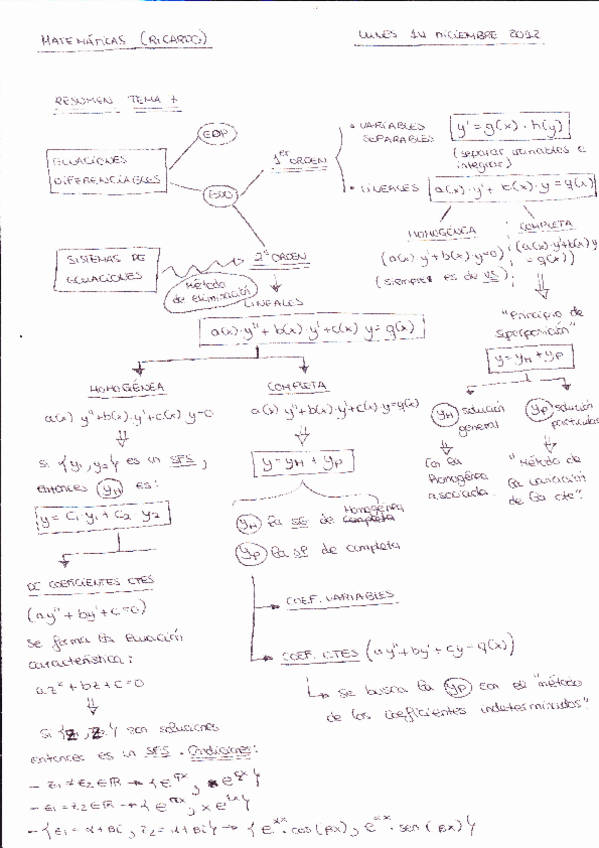 MATEMÁTICAS (RICARDO)
LUNES 14 DICIEMBRE 2012
RESUMEN TEMA 7
ECUACIONES
DIFERENCIABLES
EDP
EDO
1er ORDEN
• VARIABLES
SEPARABLES
y' = g(x) · h(y)
(separar variables e
integrar)
• LINEALES
a(x)·y' + b(x)·y = g(x)
HOMOGÉNEA
(a(x)·y'+b(x)·y=0)
(siempre es de VS)
COMPLETA
(a(x)·y'+b(x)y
= g(x))
"Principio de
superposición"
y = yH + yP
yH solución
general
de la
homogénea
asociada
yP solución
particular
"Método de
la variación
de la cte".
SISTEMAS DE
ECUACIONES
Método
de eliminación
2º ORDEN
LINEALES
a(x)·y''+b(x)·y'+c(x) y = g(x)
HOMOGÉNEA
a(x) y''+b(x)·y'+c(x) y=0
Si {y1, y2} es un SFS,
entonces yH es:
y = C1 y1 + C2 y2
DE COEFICIENTES CTES
(ay'' + by' + c = 0)
Se forma la ecuación
característica:
az² + bz + c = 0
Si {z1, z2} son soluciones
entonces es un SFS. Condiciones:
COMPLETA
a(x) y''+b(x)·y'+c(x)y=g(x)
y = yH + yP
yH la SG de Homogénea
completa
yP la SP de completa
COEF. VARIABLES
COEF. CTES (ay''+by'+cy=g(x))
Se busca la yP con el "método
de los coeficientes indeterminados".